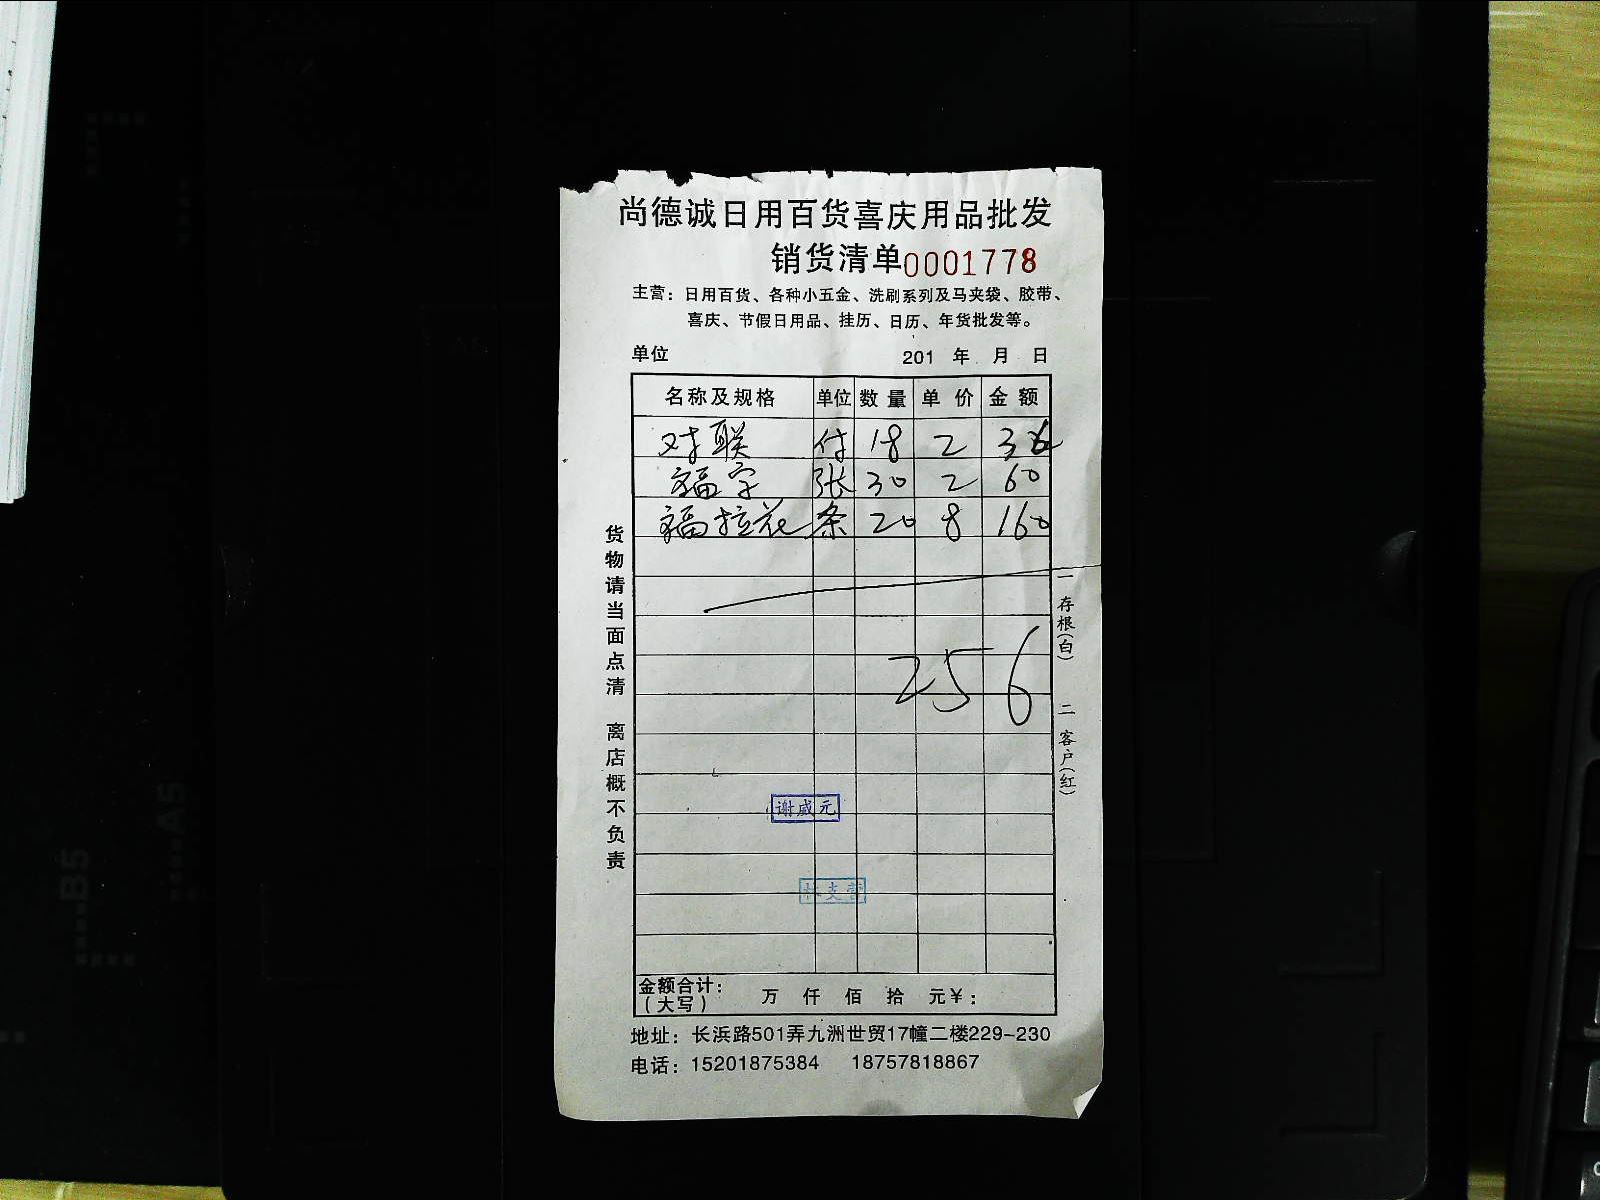 尚德诚日用百货喜庆用品批发
销货清单0001778
主营：日用百货、各种小五金、洗刷系列及马夹袋、胶带、
喜庆、节假日用品、挂历、日历、年货批发等。
单位 201 年 月 日
名称及规格 单位 数量 单价 金额
对联 付 18 2 36
福字 张 30 2 60
福拉花 条 20 8 160
256
谢威元
林支营
金额合计：
（大写） 万 仟 佰 拾 元￥：
地址：长浜路501弄九洲世贸17幢二楼229-230
电话：15201875384 18757818867
货物请当面点清 离店概不负责
一存根（白） 二客户（红）
B5
A5